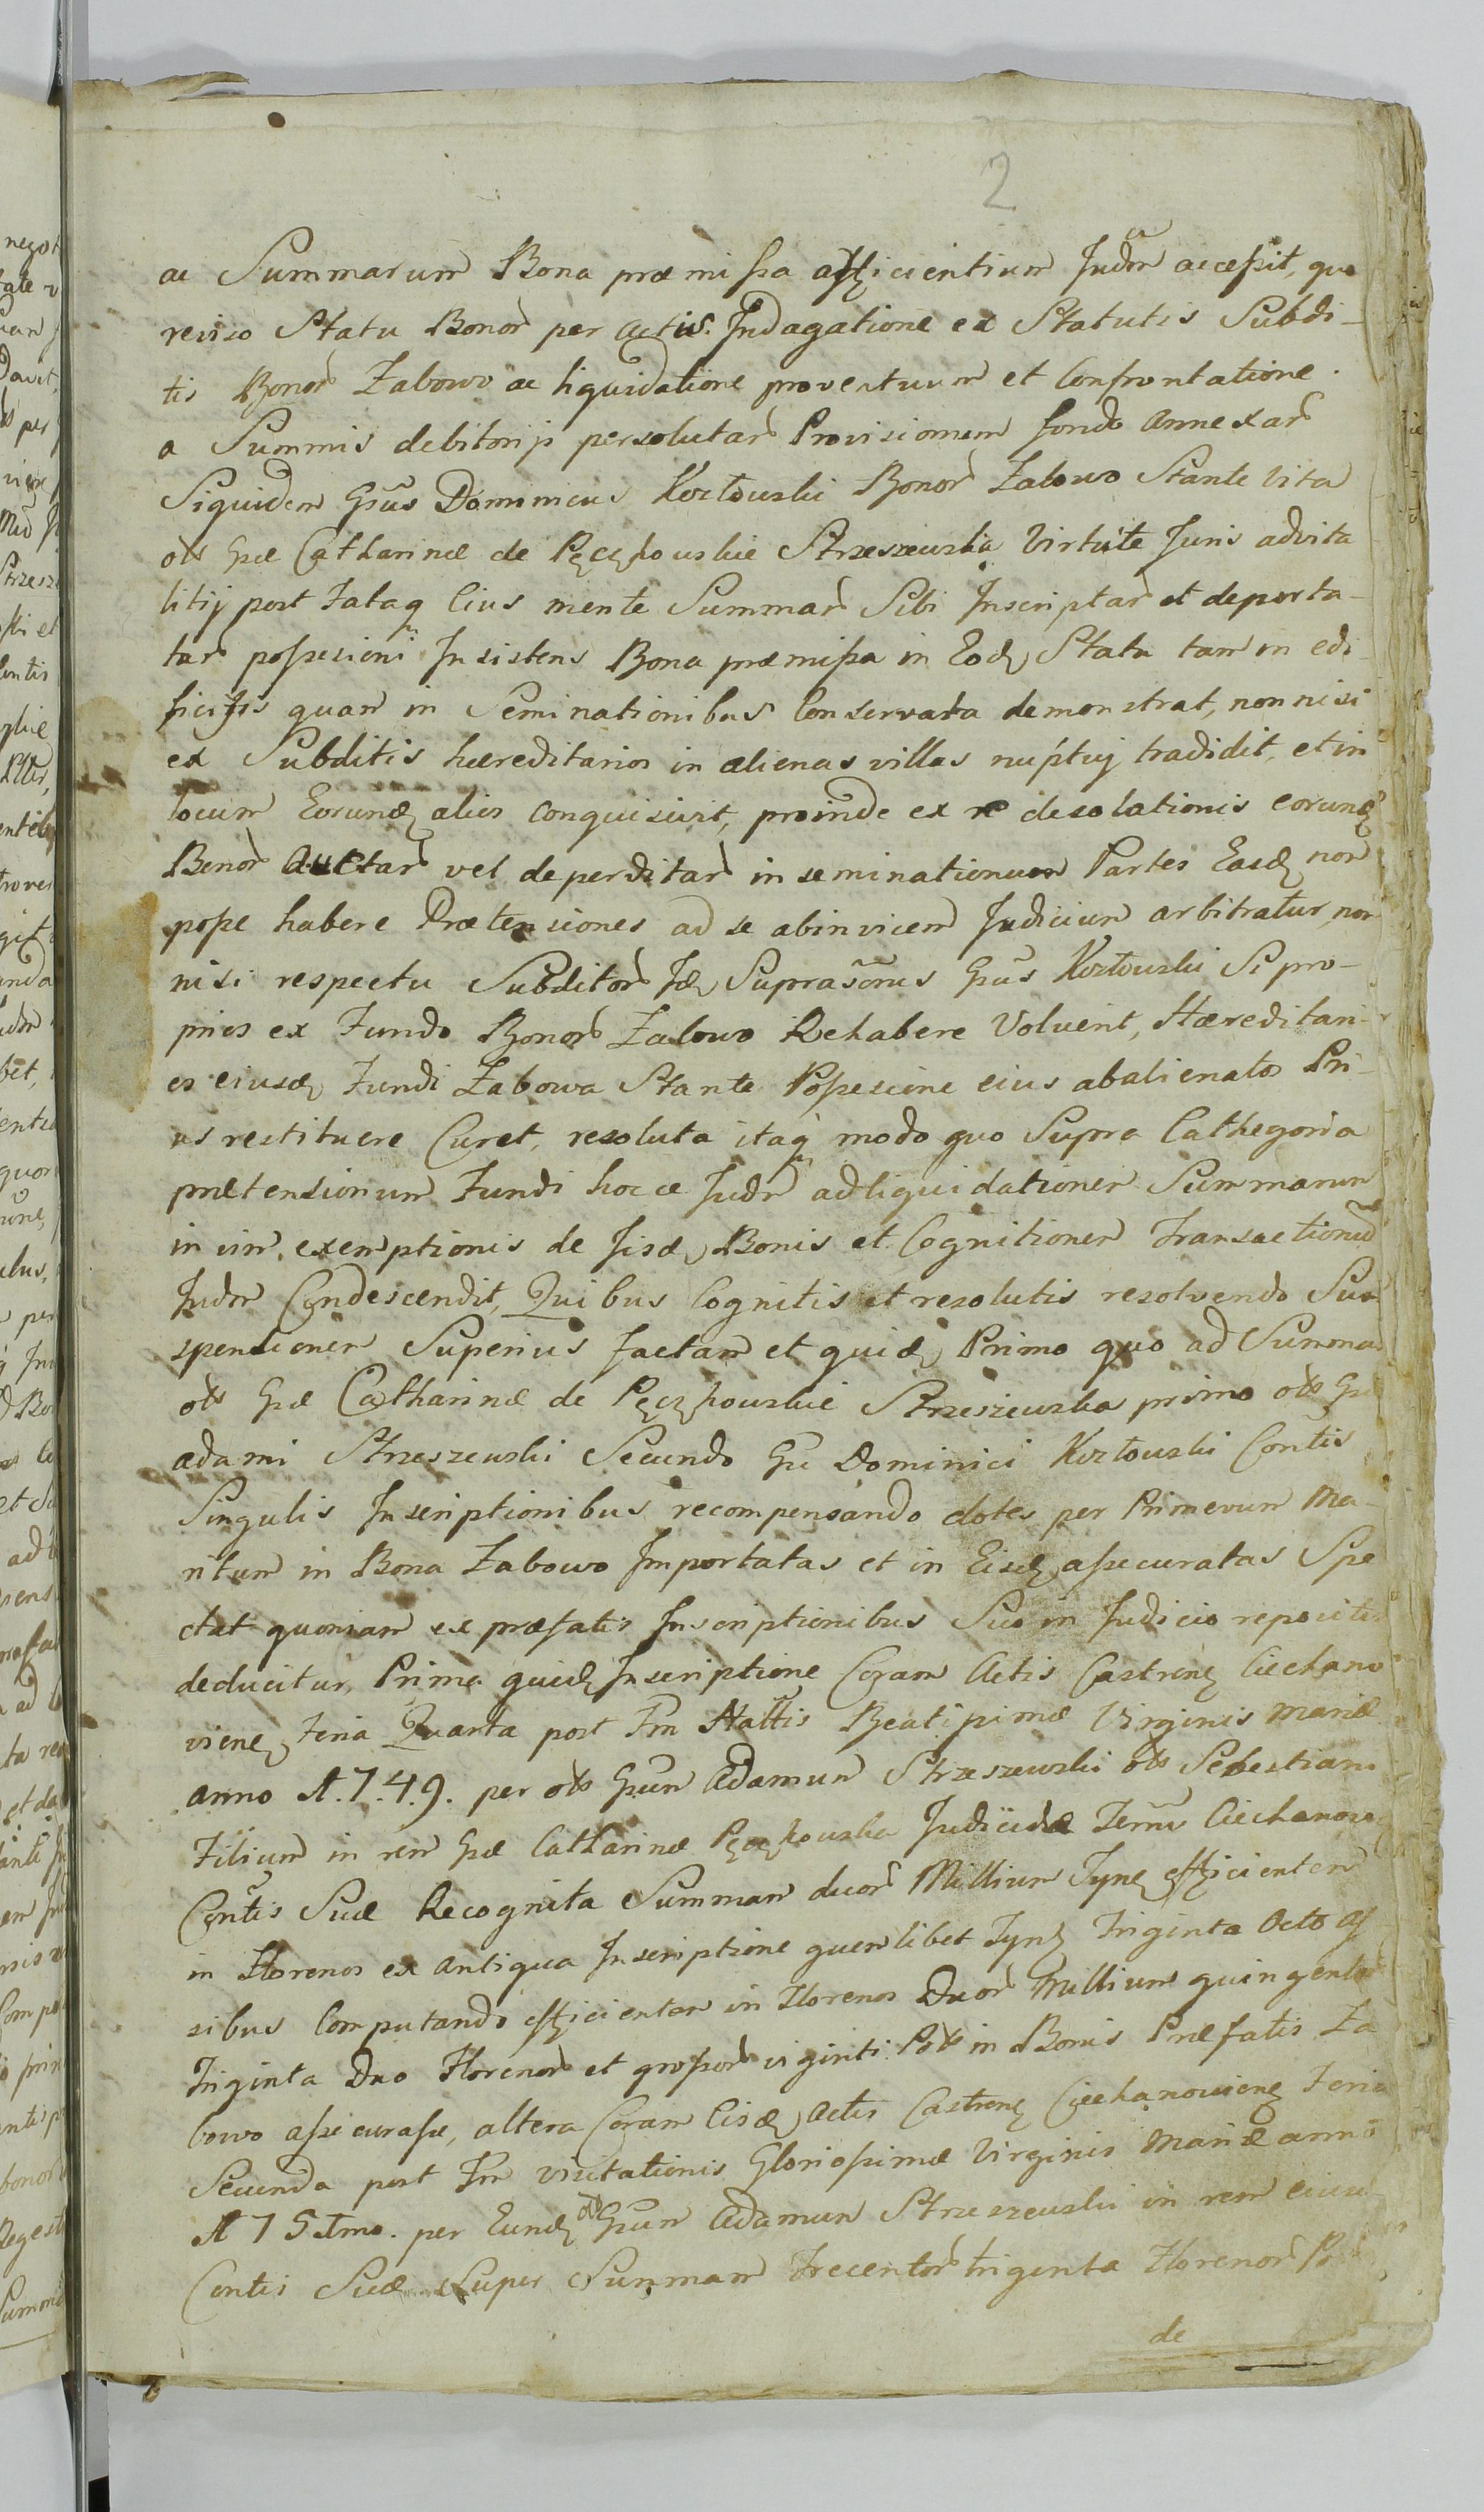 2
ac Summarum Bona præmissa afficientium Judm accessit, quo
reviso Statu Bonor per actus. Indagatione ex Statutis Subdi-
tis Bonor Zabowo ac liquidatione proventuum et Confrontatione.
a Summis debitorijs persolutar Provisionem fundo annexar
Siquidem Gsus Dominicus Kozłowski Bonor Zabowo Stante Vita
ols Gsæ Catharinæ de Pęczkowskie Strzeszewska Virtute Juris advita
litij post Fataq Eius mente Summar Sibi Inscriptar et deporta-
tar possesioni Insistens Bona præmissa in Eodz Statu tam in edi-
ficijs quam in Seminationibus Conservata demonstrat, nonnisi
ex Subditis hæreditarios in alienas villas nuptuj tradidit, et in
locum Eorundz alios conquisivit, proinde ex re desolationis eorundz
Bonor Auctar vel deperditar inseminationum Partes Easdz non
posse habere Prætensiones ad se abinvicem Judicium arbitratur, non
nisi respectu Subditor Idz Suprascrius Gsus Kozłowski Si pro-
prios ex Fundo Bonor Zabowo Rehabere Voluerit, Hæreditari-
os eiusdz Fundi Zabowa Stante Possesione eius abalienatos Pri-
us restituere Curet, resoluta itaq modo quo Supra Cathegoria
prætensionum Fundi hocce Judm ad liquidationem Summarum
in vim exemptionis de Iisdz Bonis et Cognitionem Transactionu
Judm Condescendit, Quibus Cognitis et resolutis resolvendo Sus
spensionem Superius factam et quidz Primo quo ad Summas
ols Gsæ Catharinæ de Pęczkowskie Strzeszewska primo ols Gsi
Adami Strzeszewski Secundo Gsi Dominici Kozłowski Contis
Singulis Inscriptionibus recompensando dotes per Primevum Ma-
ritum in Bona Zabowo Importatas et in Eisdz assecuratas Spe
ctat quoniam ex præfatis Inscriptionibus Suo in Judicio repositis
deducitur, Prima quidz Inscriptione Coram Actis Castrenz Ciechano
vienz Feria Quarta post Fm Nattis Beatissimæ Virginis Mariæ
Anno 1.7.4.9. per ols Gsum Adamum Strzeszewski ols Sebestiani
Filium in rem Gsæ Catharinæ Pęczkowska Judicidæ Terris Ciechanow
Contis Suæ Recognita Summam duor Millium Tynz efficientem
in Florenos ex antiqua Inscriptione quemlibet Tynz Triginta Octo gs
sibus Computando efficientem in Florenos Duor Millium quingentor
Triginta Duo Florenor et grossor viginti Pols in Bonis Præfatis Za
bowo assecurasse, altera Coram Eisdz Actis Castrenz Ciechanovienz Feria
Secunda post Fm visitationis Gloriosissimæ Virginis Mariæ anno
1751mo. per Eundz ols Gsum Adamum Strzeszewski in rem eiusd
Contis Suæ Super Summam Trecentor triginta Florenor
de